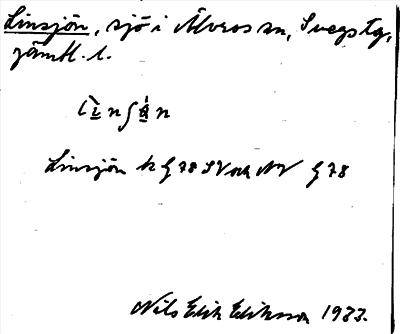 Linsjön, sjö i Älvros sn, Svegs tg,
jämtl. l.
Linsjön k G 78 SV och NV G 78
Nils Erik Eriksson 1933.